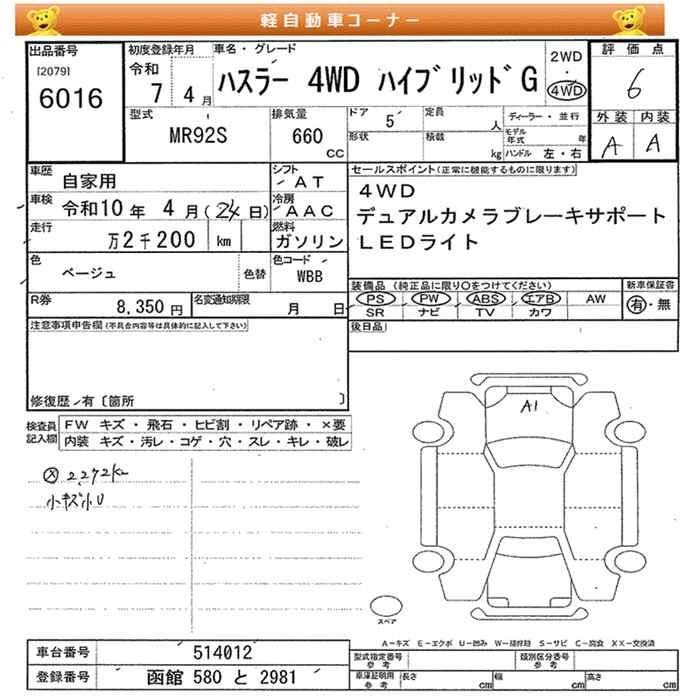 軽自動車コーナー
出品番号
[2079]
6016
初度登録年月
令和
7 4月
車名・グレード
ハスラー 4WD ハイブリッドG
2WD
・
4WD
評価点
6
外装 内装
A A
型式
MR92S
排気量
660
CC
ドア
5
定員
人
形状
積載
kg
ディーラー・並行
モデル年式
年
ハンドル 左・右
車歴
自家用
シフト
AT
車検
令和10年 4月(24日)
冷房
AAC
走行
万2千200 km
燃料
ガソリン
色
ベージュ
色替
色コード
WBB
R券
8,350円
名変通知期限
月 日
セールスポイント(正常に機能するものに限ります)
4WD
デュアルカメラブレーキサポート
LEDライト
装備品 (純正品に限り○をつけてください)
PS PW ABS エアB AW
SR ナビ TV カワ
新車保証書
有・無
後日品
注意事項申告欄(不具合内容等は具体的に記入して下さい)
修復歴 有〔箇所 〕
検査員
記入欄
FW キズ・飛石・ヒビ割・リペア跡・×要
内装 キズ・汚レ・コゲ・穴・スレ・キレ・破レ
2,272km
小キズ小U
A1
スペア
A-キズ E-エクボ U-凹み W-補修跡 S-サビ C-腐食 XX-交換済
車台番号
514012
登録番号
函館 580 と 2981
型式指定番号
参考
類別区分番号
参考
車庫証明用
参考
長さ
cm
幅
cm
高さ
cm